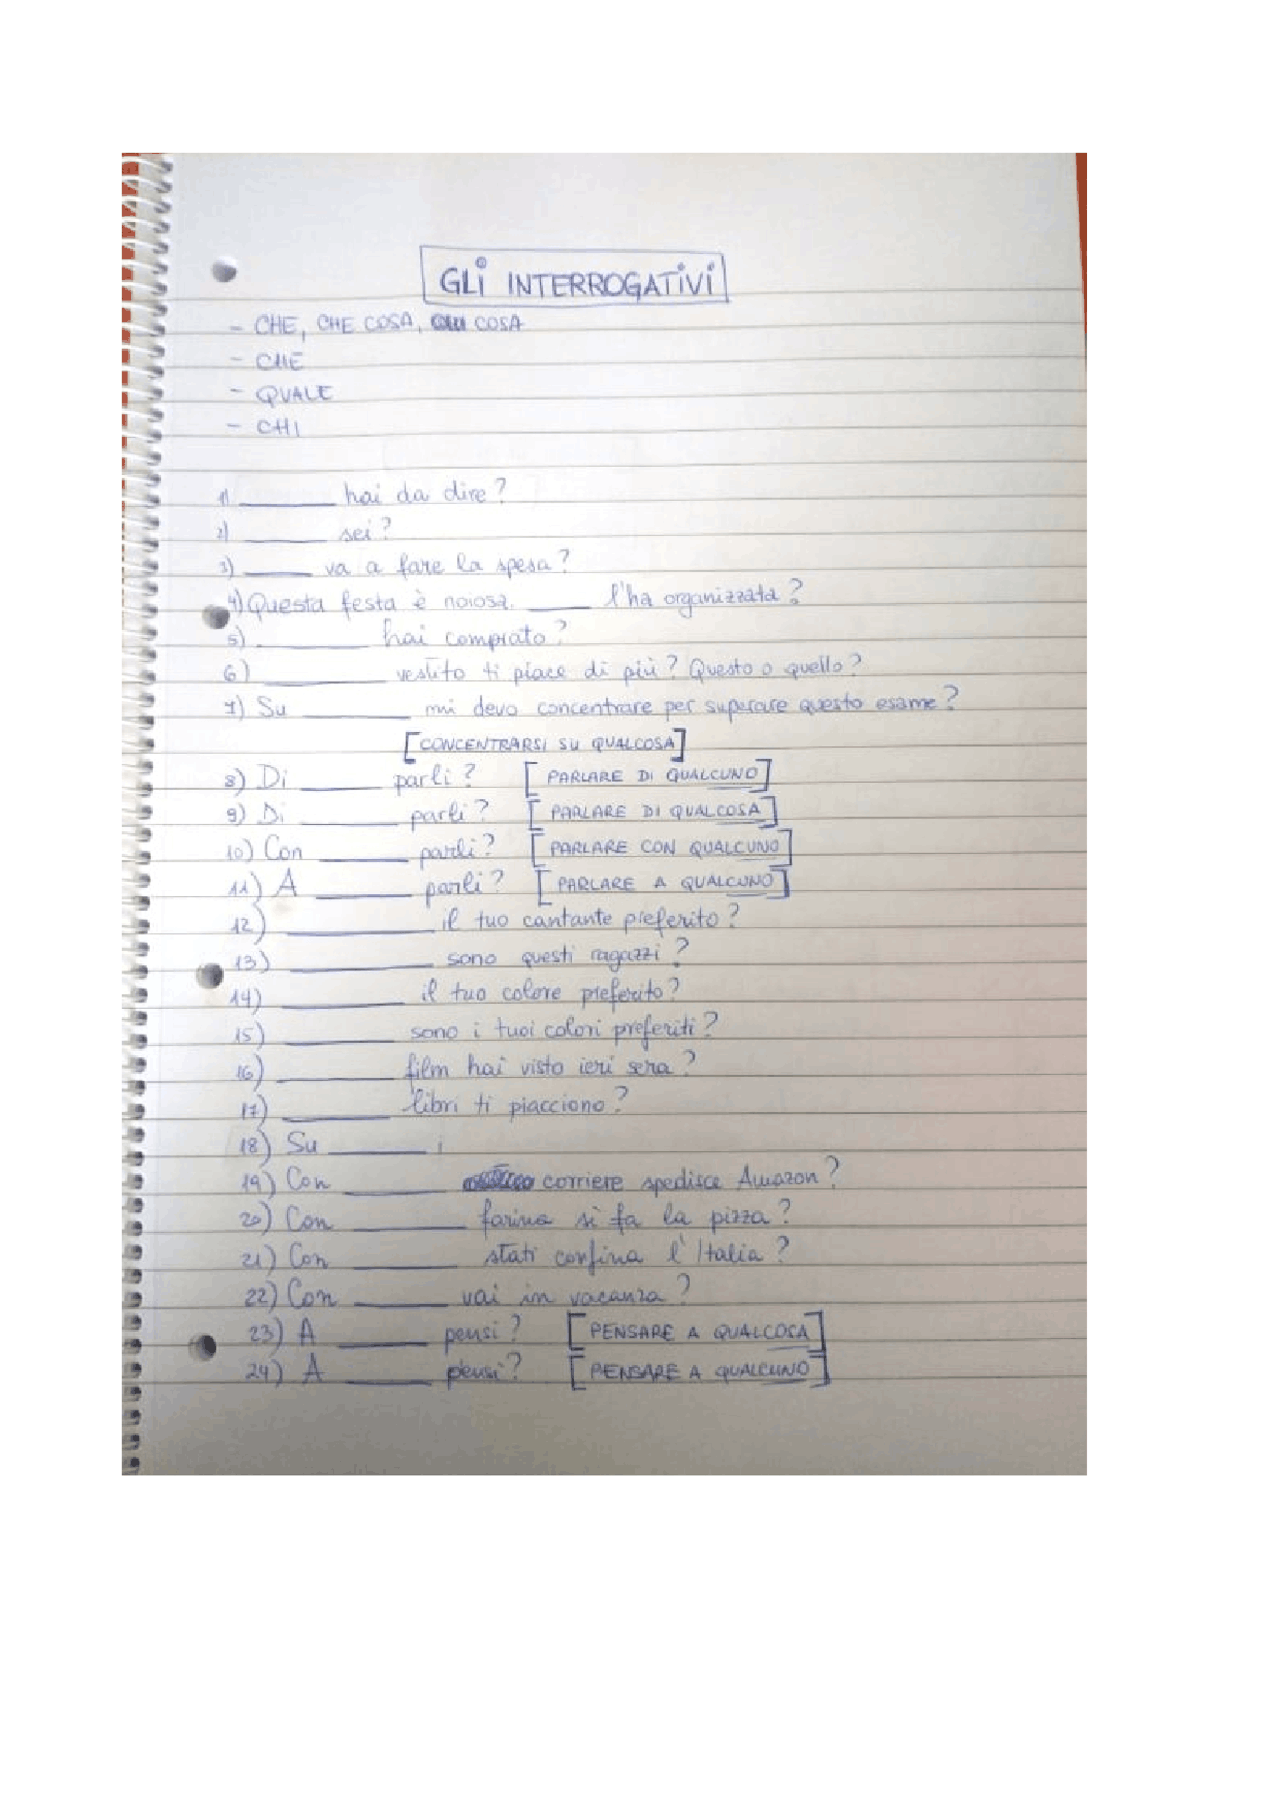 GLI INTERROGATIVI
- CHE, CHE COSA, COSA
- CHE
- QUALE
- CHI
1) ______ hai da dire?
2) ______ sei?
3) ______ va a fare la spesa?
4) Questa festa è noiosa. ______ l'ha organizzata?
5) ______ hai comprato?
6) ______ vestito ti piace di più? Questo o quello?
7) Su ______ mi devo concentrare per superare questo esame?
[CONCENTRARSI SU QUALCOSA]
8) Di ______ parli? [PARLARE DI QUALCUNO]
9) Di ______ parli? [PARLARE DI QUALCOSA]
10) Con ______ parli? [PARLARE CON QUALCUNO]
11) A ______ parli? [PARLARE A QUALCUNO]
12) ______ il tuo cantante preferito?
13) ______ sono questi ragazzi?
14) ______ il tuo colore preferito?
15) ______ sono i tuoi colori preferiti?
16) ______ film hai visto ieri sera?
17) ______ libri ti piacciono?
18) Su ______ i
19) Con ______ corriere spedisce Amazon?
20) Con ______ farina si fa la pizza?
21) Con ______ stati confina l'Italia?
22) Con ______ vai in vacanza?
23) A ______ pensi? [PENSARE A QUALCOSA]
24) A ______ pensi? [PENSARE A QUALCUNO]